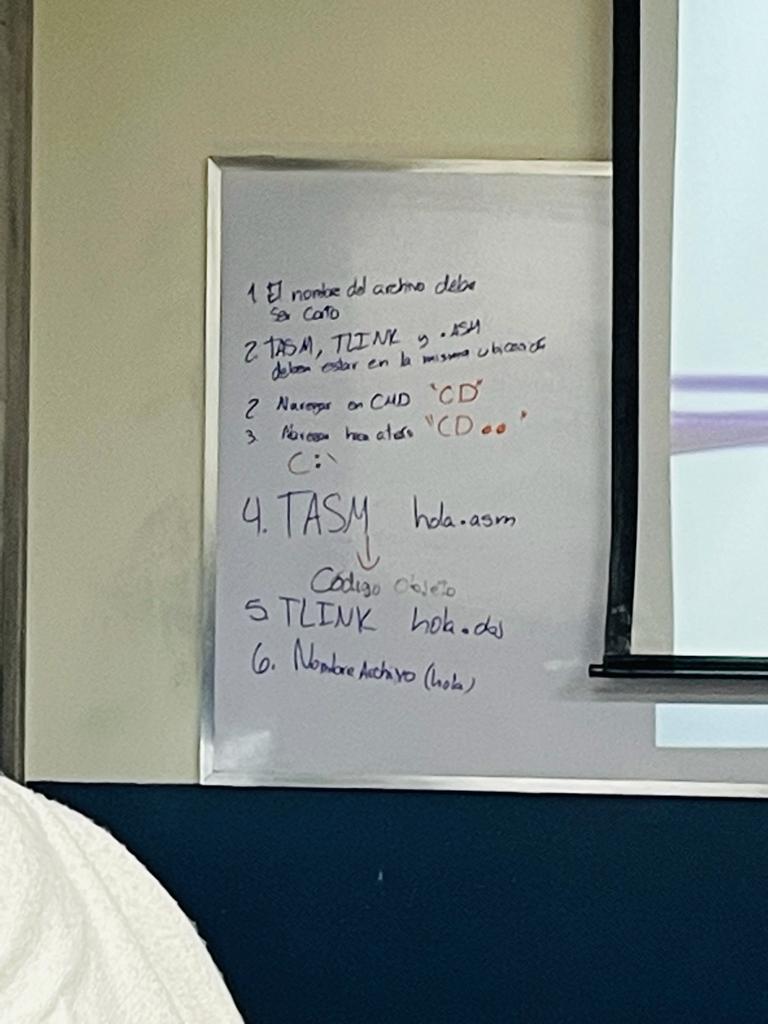 1 El nombre del archivo debe
ser corto
2 TASM, TLINK y .ASM
deben estar en la misma ubicación
2 Navegar en CMD "CD"
3 Navegar hacia atrás "CD.."
C:\
4. TASM hola.asm
Código Objeto
5 TLINK
6. Nombre Archivo (hola)